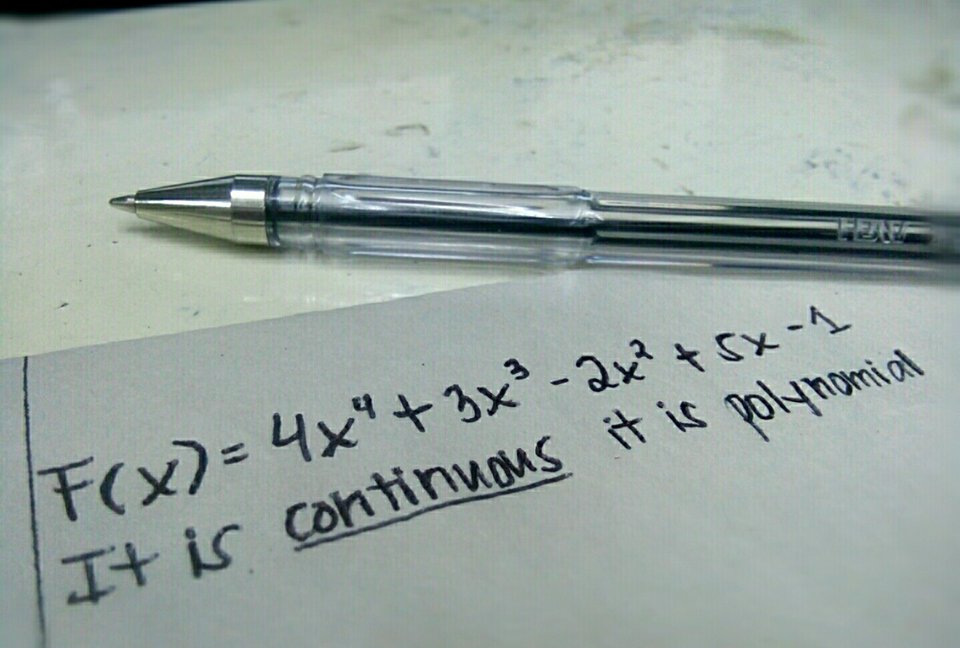 F(x) = 4x⁴ + 3x³ - 2x² + 5x - 1
It is continuous it is polynomial